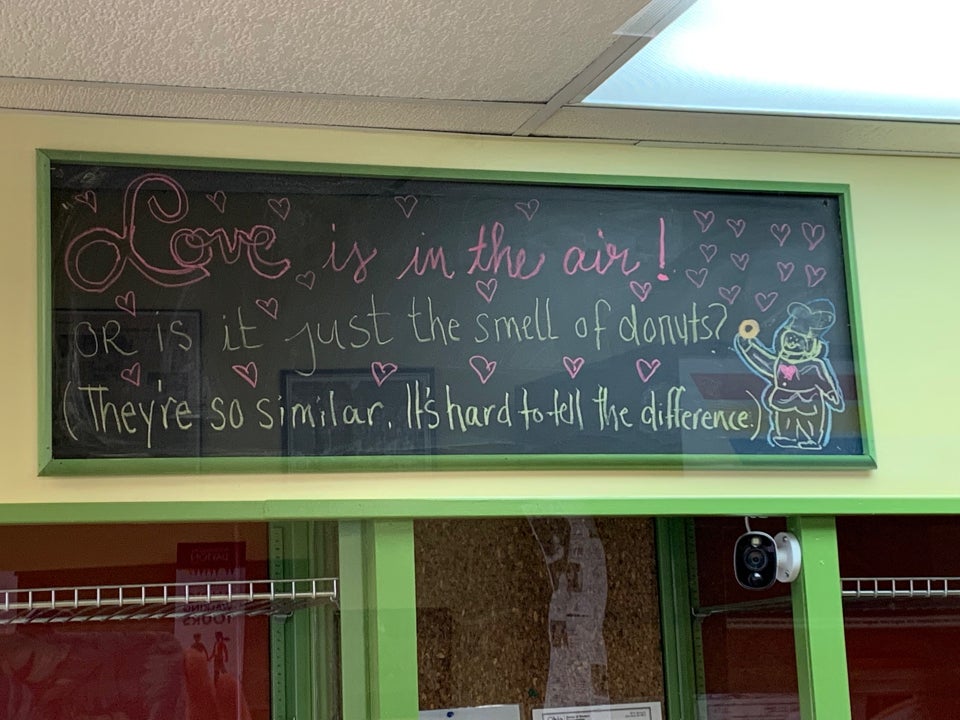 Love is in the air!
OR is it just the smell of donuts?
(They're so similar. It's hard to tell the difference.)
WALKING
TOURS